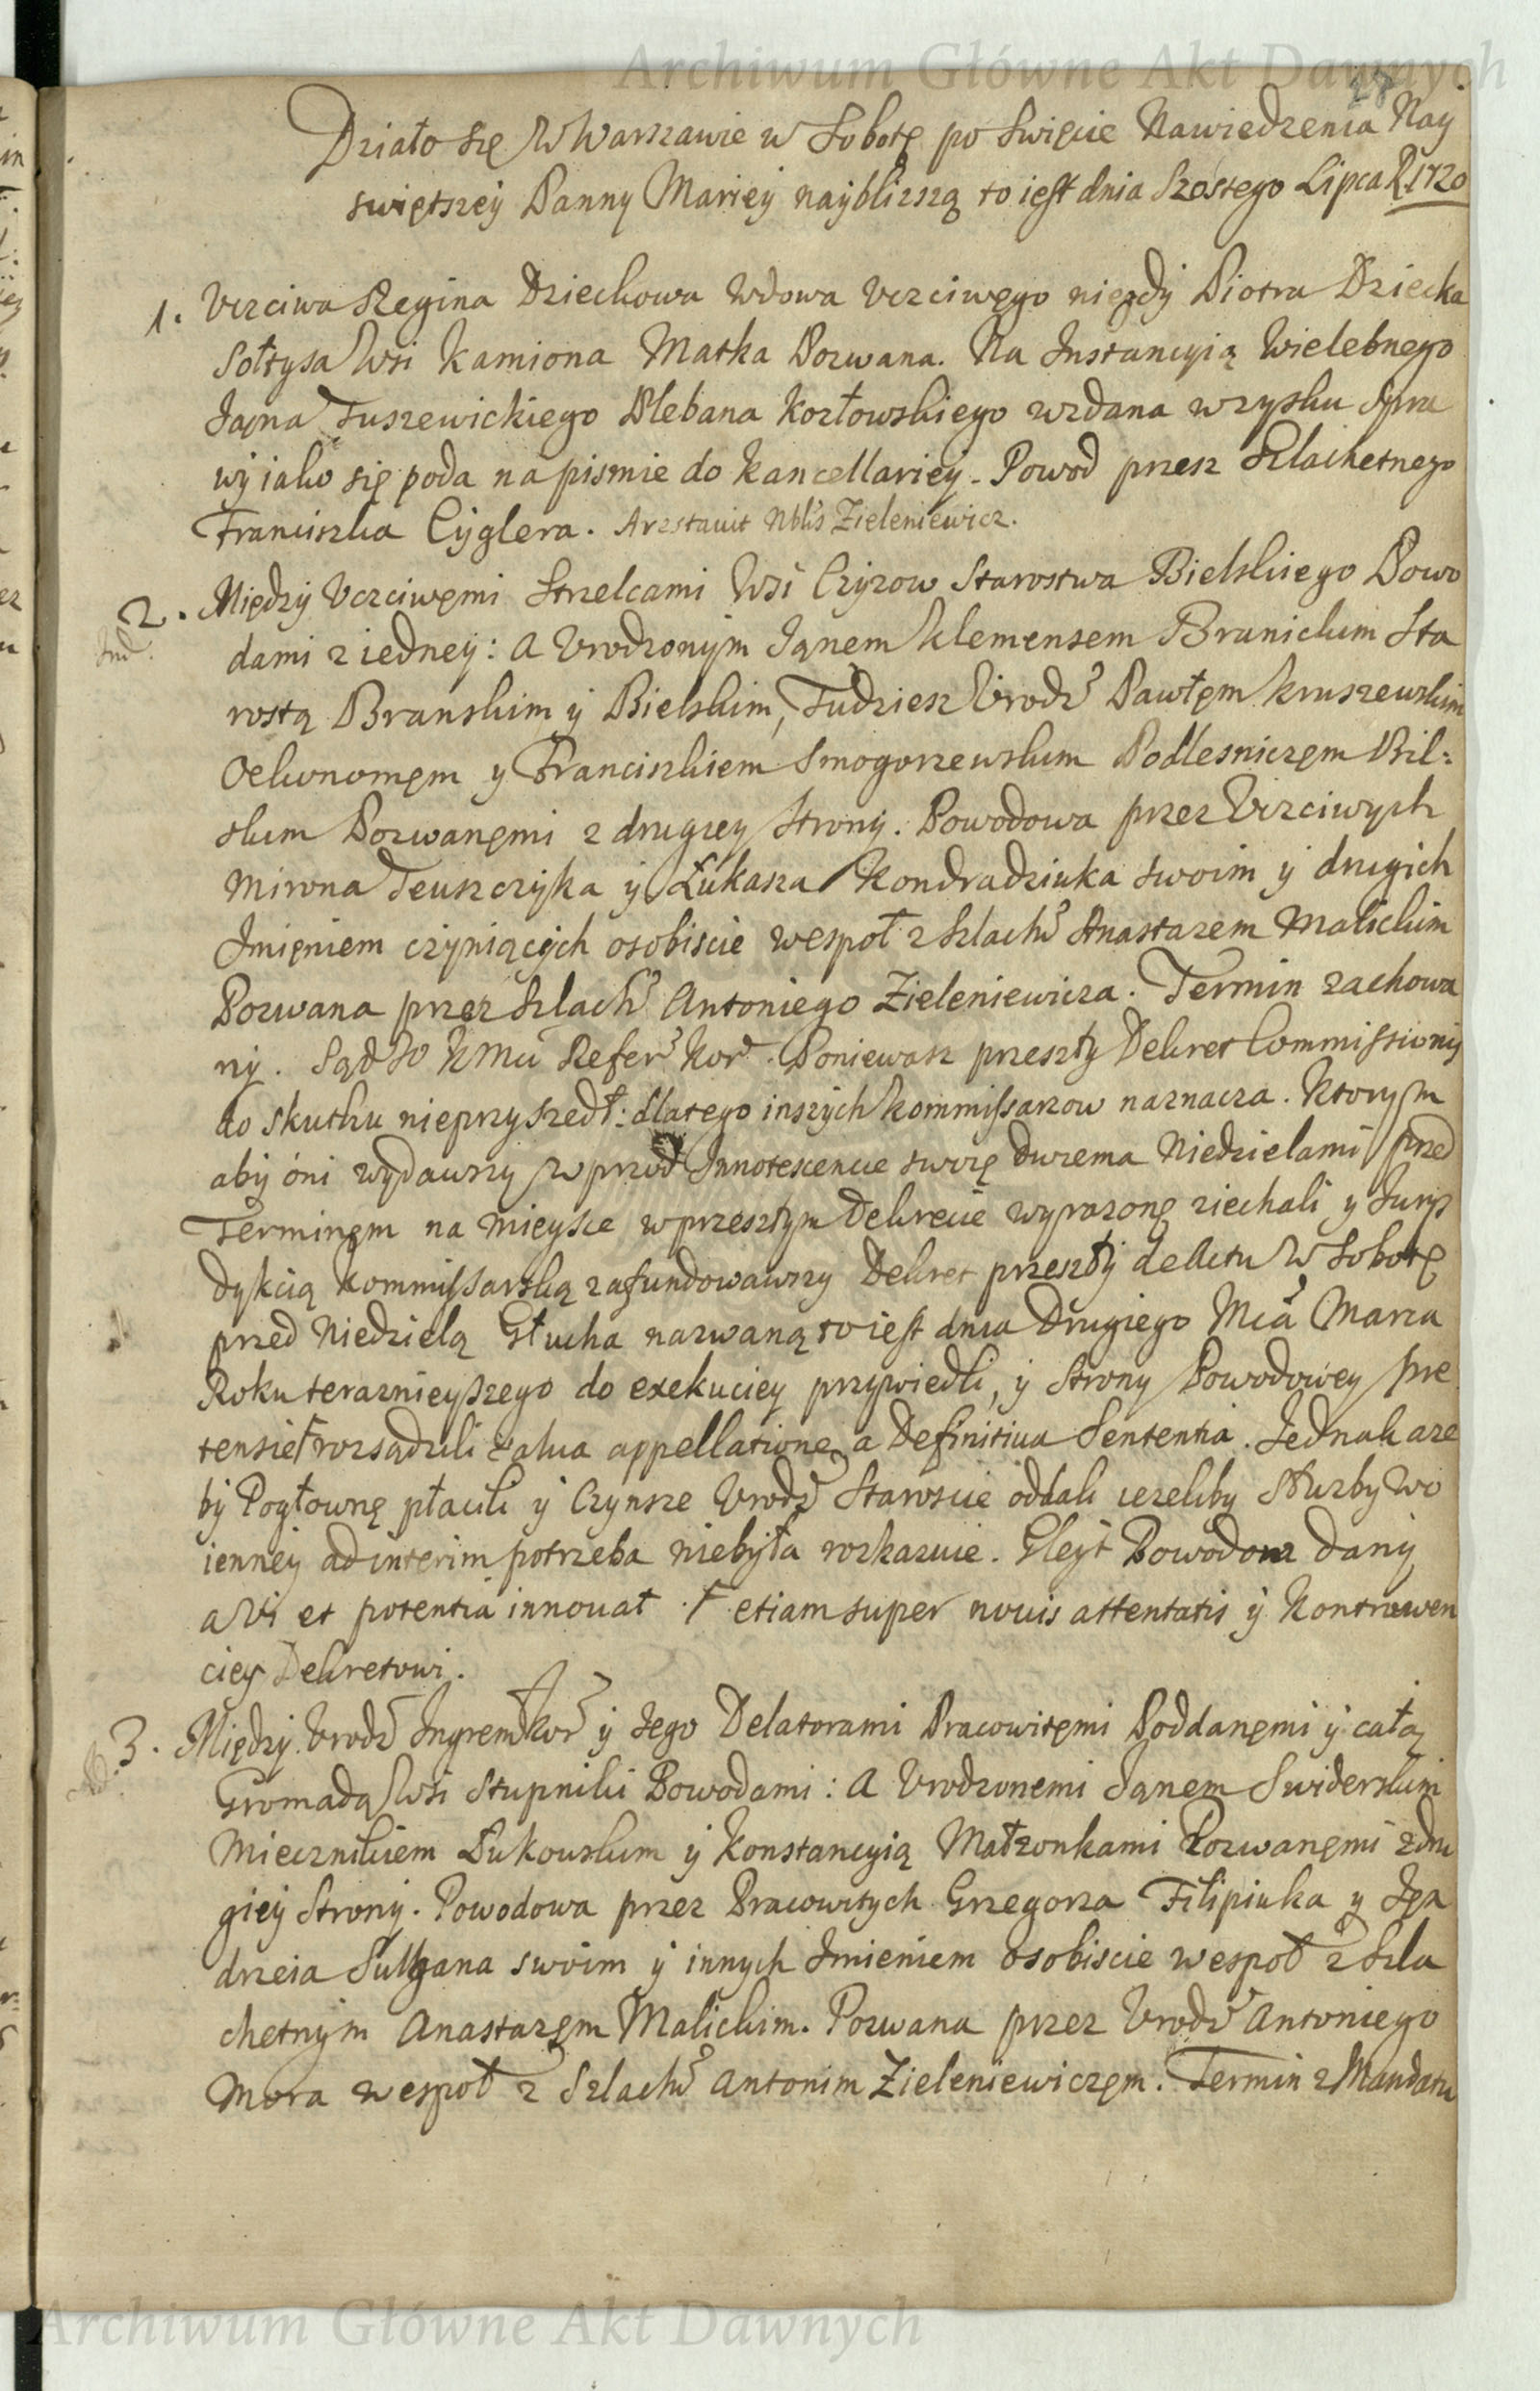 Archiwum Główne Akt Dawnych
28
Działo się W Warszawie w Sobotę po Swięcie Nawiedzenia Nay
swiętszey Panny Mariey naybliszszą to iest dnia Szostego Lipca R 1720
1. Vczciwa Regina Dziechowa Wdowa Vczciwęgo niegdy Piotra Dziecha
Sołtysa Wsi Kamiona Matka Pozwana. Na Instancyią Wielebnego
Iąna Tuszewickiego Plebana Kozłowskiego wzdana w zysku Spra
wy iako się poda na pismie do Kancellariey. Powod przesz Szlachetnego
Franciszka Cyglera. Arestauit Nblis Zieleniewicz.
2. Między Vczciwęmi Strzelcami Wsi Czyzow Starostwa Bielskiego Powo
dami z iedney: A Vrodzonym Iąnem Klemensem Branickim Sta
rostą Branskim y Bielskim, Tudziesz Vrodz Pawłęm Kruszewskim
Oekonomęm y Franciszkiem Smogorzewskim Podlesniczęm Bil:
skim Pozwanęmi z drugiey Strony. Powodowa przez Vczciwych
Mirona Teuszczyka y Łukasza Kondradziuka swoim y drugich
Imięniem czyniących osobiscie wespoł z Szlach Anastazem Malickim
Pozwana przez Szlach Antoniego Zieleniewicza. Termin zachowa
ny. Sąd JO KMci Refer Kor. Poniewasz przeszły Dekret Commissionis
do skutku nieprzyszedł: dlatego inszych Kommissarzow naznacza. Ktorym
aby oni wydawszy wprzod Innotescencie swoię dwiema Niedzielami przed
Terminęm na mieysce w przeszłym Dekrecie wyrazonę ziechali y Jurys
dykcią Kommissarską zafundowawszy Dekret przeszły de Actu W Sobotę
przed Niedzielą Głucha nazwaną to iest dnia Drugiego Mca Marca
Roku terazniejszego do exekuciey przywiedli, y Strony Powodowey pre
tensie Ⱡ rozsądzili salua appellatione a Definitiua Sententia. Jednak aze
by Pogłownę płacili y Czynsze Vrodz Staroscie oddali iezeliby Słuzby Wo
ienney ad interim potrzeba niebyła rozkazuie. Gleyt Powodom dany
a Vi et potentia innouat. Ⱡ etiam super nouis attentatis y Kontrawen
ciey Dekretowi.
3. Między Vrodz Instygatorem Kor y Jego Delatorami Pracowitęmi Poddanęmi y całą
Gromadą Wsi Stupniki Powodami: A Vrodzonemi Ianem Swiderskim
Miecznikiem Łukowskim y Konstancyią Małzonkami Pozwanęmi z dru
giey Strony. Powodowa przez Pracowitych Grzegorza Filipiuka y Ięn
drzeia Sulzana swoim y innych Imieniem osobiscie wespoł z Szla
chetnym Anastazęm Malickim. Pozwana przez Vrodz Antoniego
Mora wespoł z Szlach Antonim Zieleniewiczęm. Termin z Mandatu
Archiwum Główne Akt Dawnych